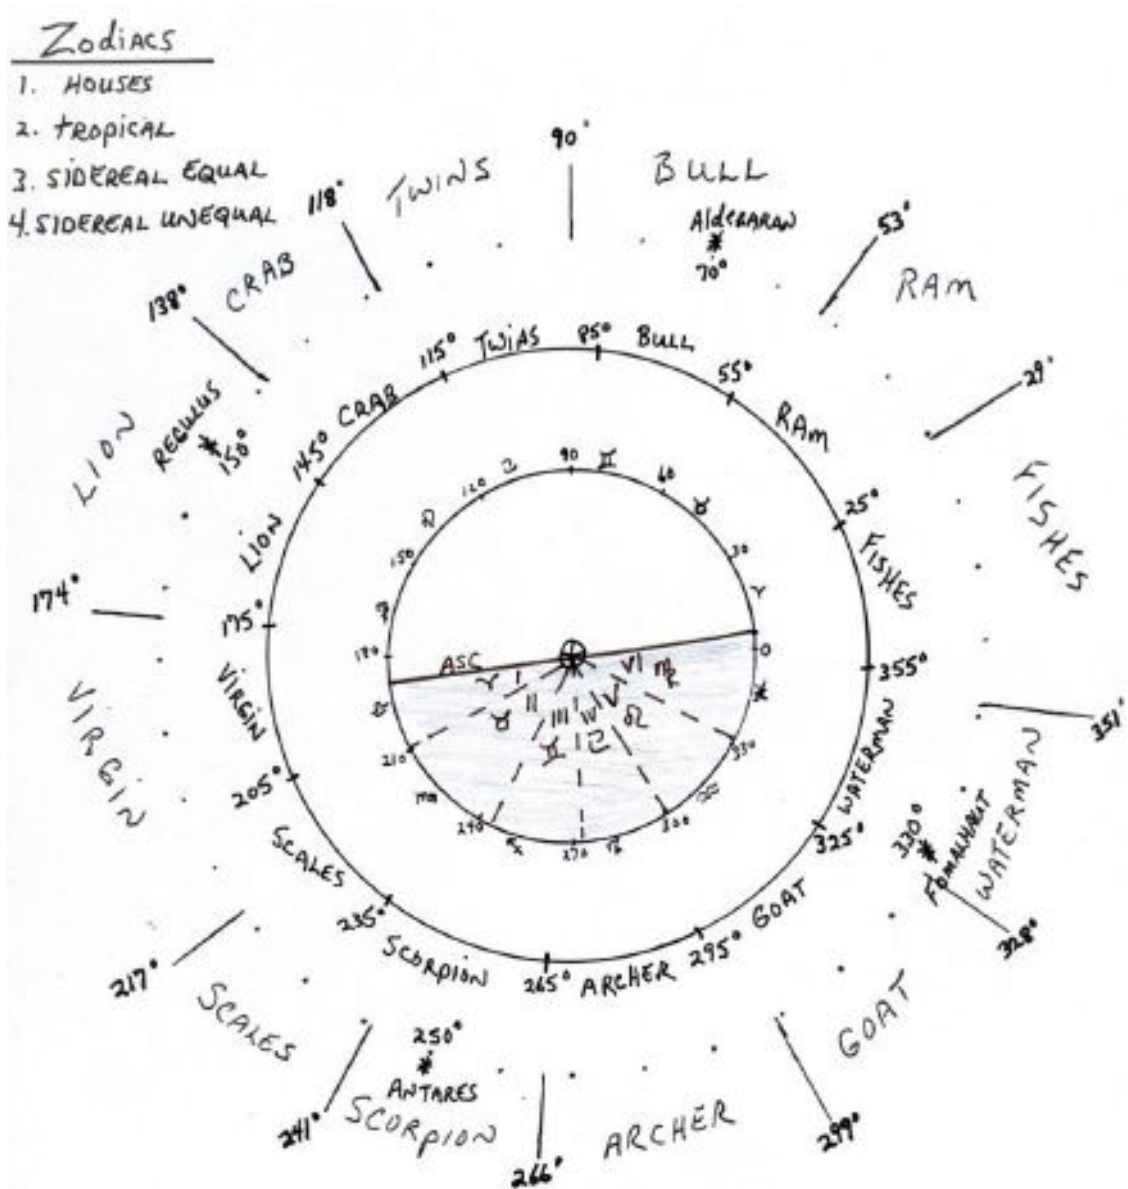 Zodiacs
1. HOUSES
2. tROPICAL
3. SIDEREAL EQUAL
4. SIDEREAL UNEQUAL
90°
BULL
Aldebaran
*
70°
53°
RAM
29°
FISHES
351°
WATERMAN
330°
*
FOMALHAUT
328°
GOAT
299°
ARCHER
266°
250°
*
ANTARES
SCORPION
241°
SCALES
217°
VIRGIN
174°
LION
REGULUS
*
150°
138°
CRAB
118°
TWINS
85°
BULL
55°
RAM
25°
FISHES
355°
WATERMAN
325°
GOAT
295°
ARCHER
265°
SCORPION
235°
SCALES
205°
VIRGIN
175°
LION
145°
CRAB
115°
TWIAS
90
♊
60
♉
30
♈
0
♓
330
♒
300
♑
270
♐
240
♏
210
♎
180
♍
150
♌
120
♋
ASC
♈ I
♉ II
♊ III
♋ IV
♌ V
♍ VI